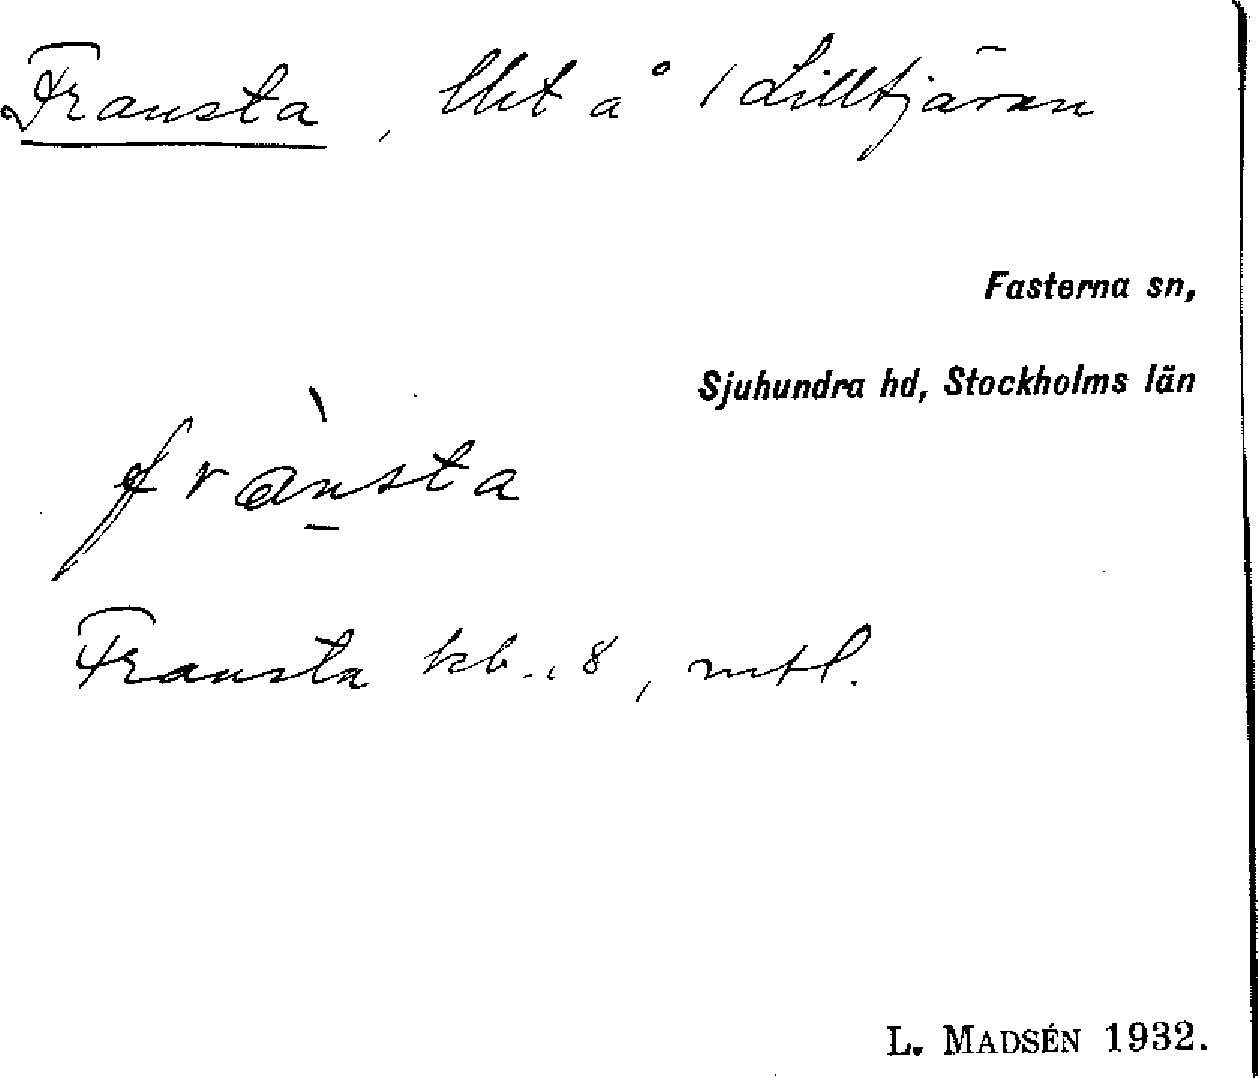 Fransta, lht å 1 Lilltjäran
Fasterna sn,
Sjuhundra hd, Stockholms län
frànsta
Fransta kb. 8, mtl.
L. MADSÉN 1932.